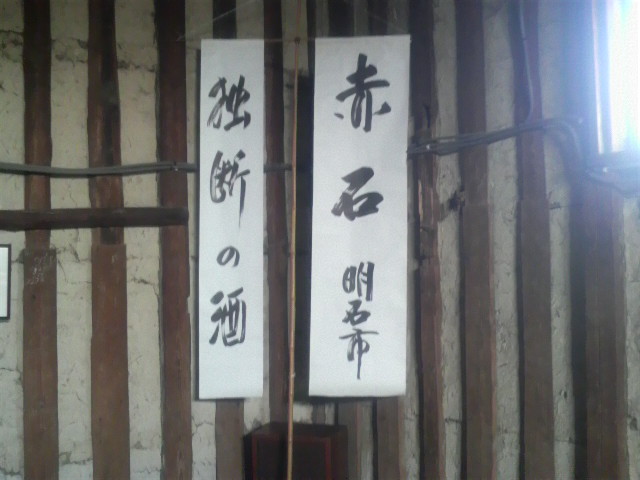 赤石 明石市
独断の酒